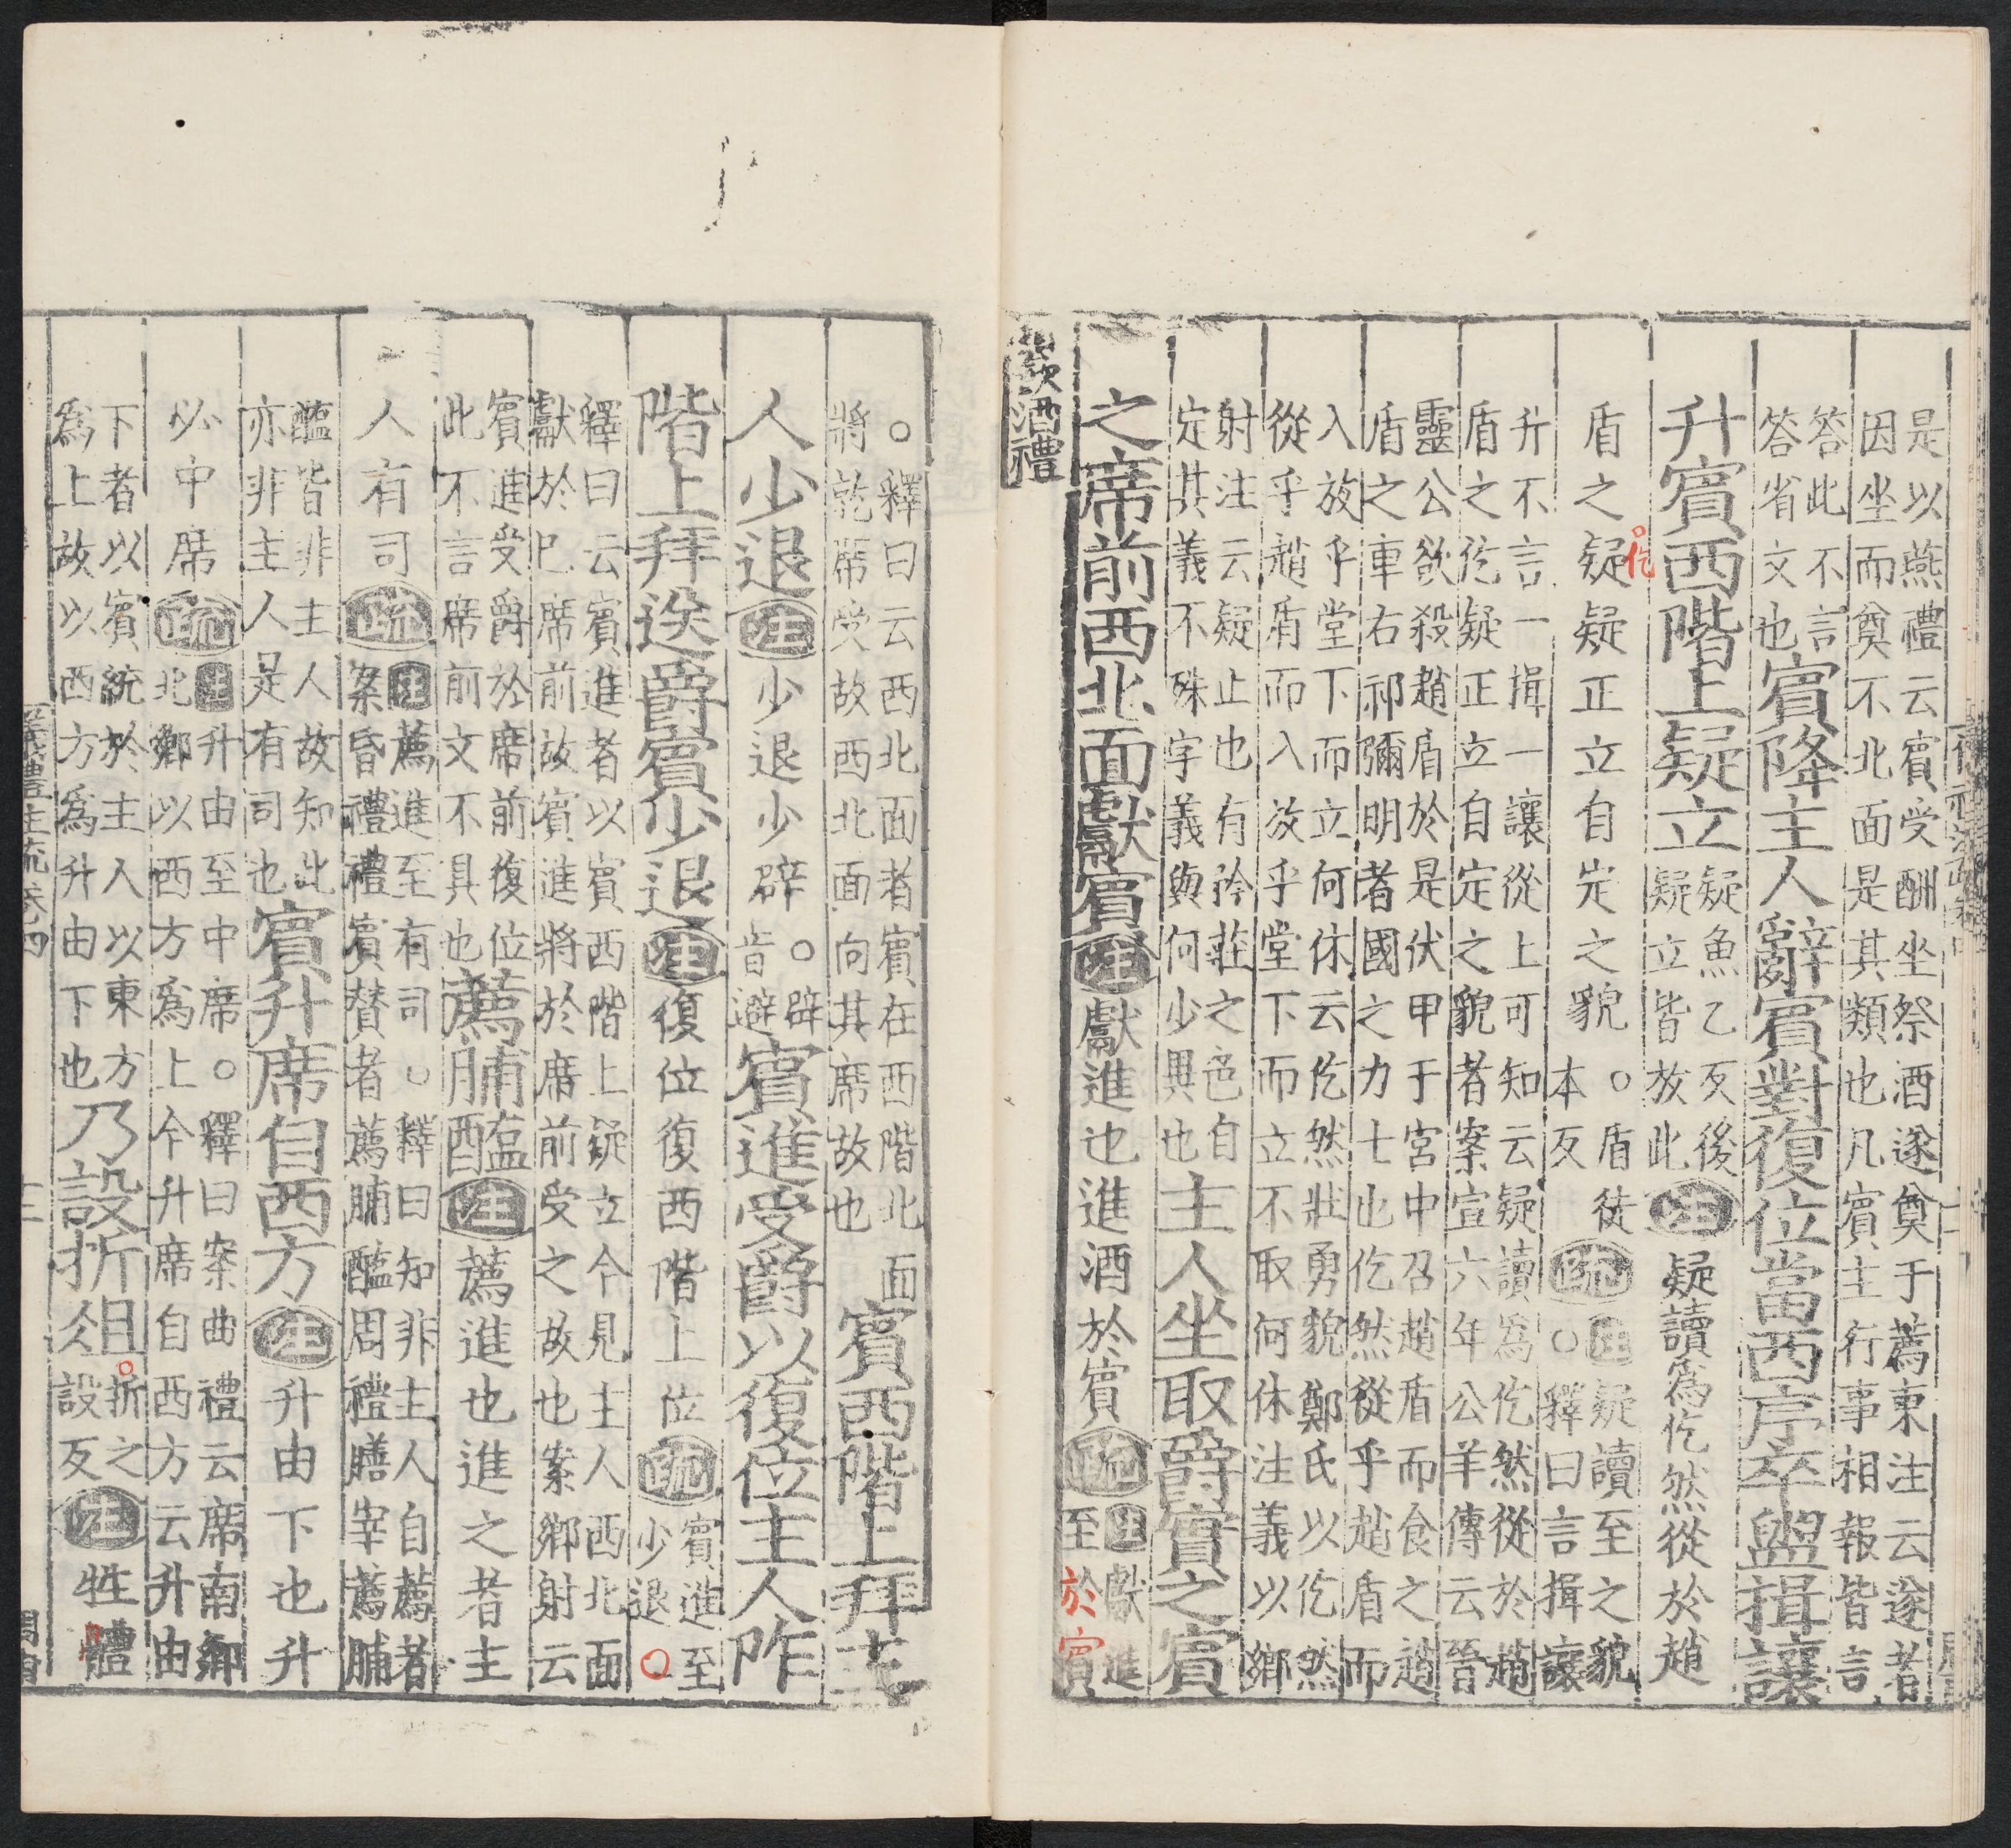 是以燕禮云賓受酬坐祭酒遂奠于薦東注云遂者
因坐而奠不北面是其類也凡賓主行事相報皆言
答此不言
答省文也
賓降主人辭賓對復位當西序卒盥揖讓
升賓西階上疑立
疑魚乙反後
疑立皆放此
注疑讀爲仡然從於趙
盾之疑疑正立自定之貌
。盾徒
本反
疏
注疑讀至之貌
。釋曰言揖讓
升不言一揖一讓從上可知云疑讀爲仡然從於趙
盾之仡疑正立自定之貌者案宣六年公羊傳云晉
靈公欲殺趙盾於是伏甲于宮中召趙盾而食之趙
盾之車右祁彌明者國之力士也仡然從乎趙盾而
入放乎堂下而立何休云仡然壯勇貌鄭氏以仡然
從乎趙盾而入放乎堂下而立不取何休注義以鄉
射注云疑止也有矜莊之色自
定其義不殊字義與何少異也
主人坐取爵實之賓
之席前西北面獻賓
注獻進也進酒於賓
疏
注獻進
至於賓
飲酒禮
仡
。釋曰云西北面者賓在西階北面
將就席受故西北面向其席故也
賓西階上拜主
人少退
注少退少辟
。辟
音避
賓進受爵以復位主人阼
階上拜送爵賓少退
注復位復西階上位
疏
賓進至
少退○
釋曰云賓進者以賓西階上疑立今見主人西北面
獻於己席前故賓進將於席前受之故也案鄉射云
賓進受爵於席前復位
此不言席前文不具也
薦脯醢
注薦進也進之者主
人有司
疏
注薦進至有司。釋曰知非主人自薦者
案昏禮禮賓贊者薦脯醢周禮膳宰薦脯
醢皆非主人故知此
亦非主人是有司也
賓升席自西方
注升由下也升
必中席
疏
注升由至中席。釋曰案曲禮云席南鄉
北鄉以西方爲上今升席自西方云升由
下者以賓統於主人以東方
爲上故以西方爲升由下也
乃設折俎
。折之
設反
注牲體
儀禮注疏卷四